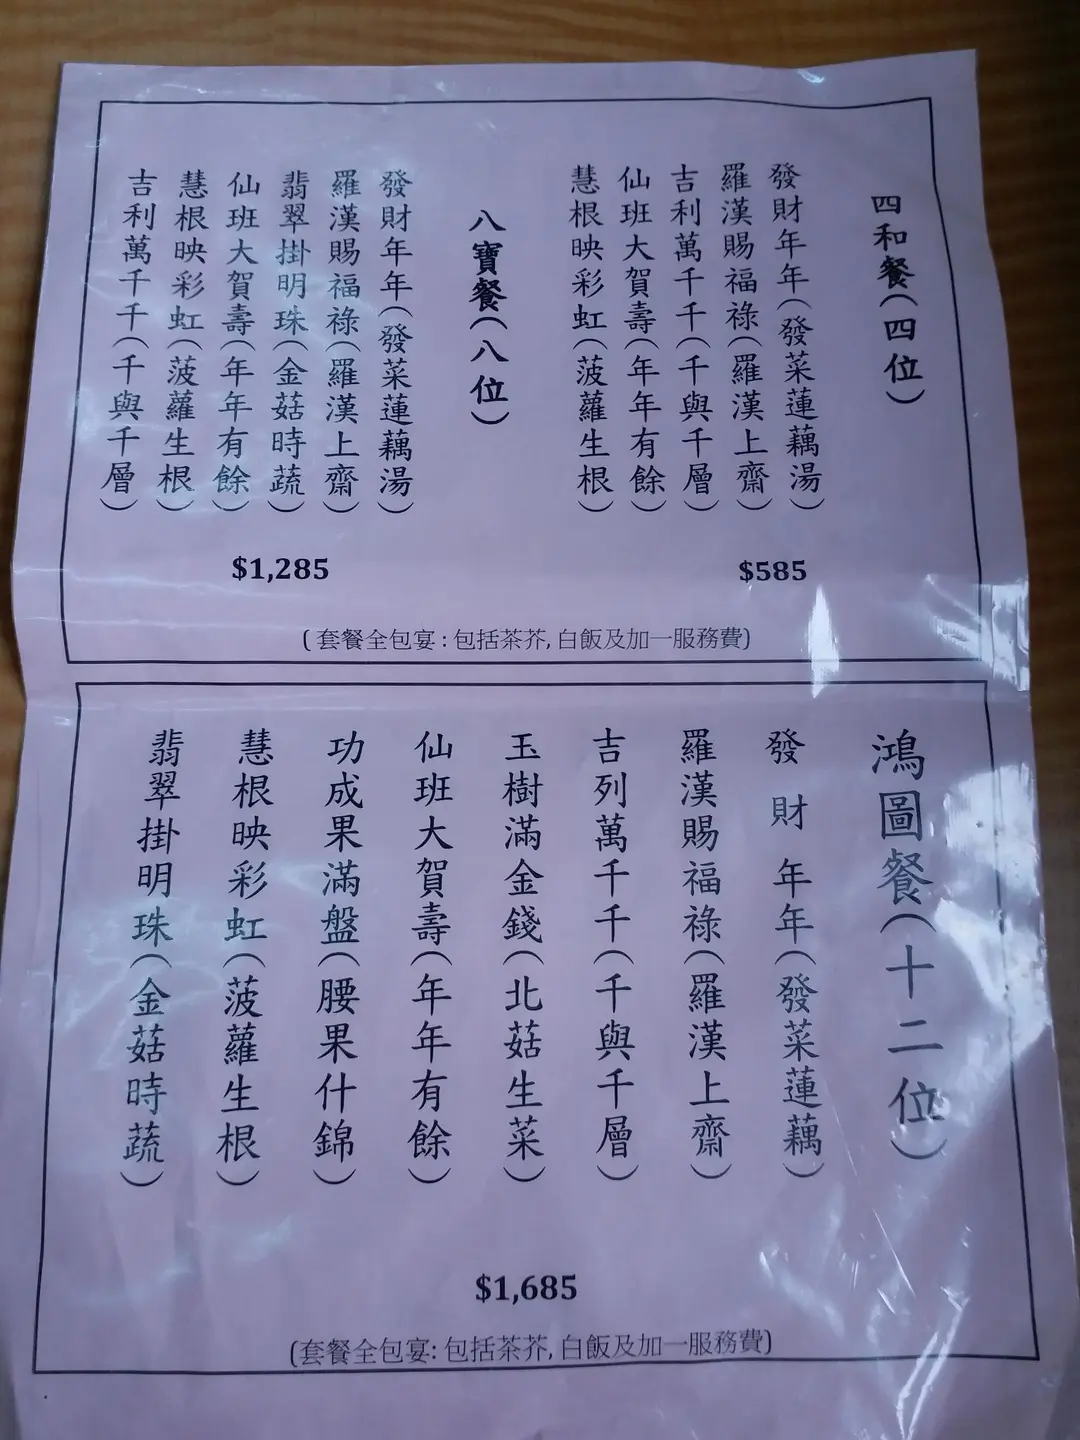 四和餐(四位)
發財年年(發菜蓮藕湯)
羅漢賜福祿(羅漢上齋)
吉利萬千千(千與千層)
仙班大賀壽(年年有餘)
慧根映彩虹(菠蘿生根)
$585
八寶餐(八位)
發財年年(發菜蓮藕湯)
羅漢賜福祿(羅漢上齋)
翡翠掛明珠(金菇時蔬)
仙班大賀壽(年年有餘)
慧根映彩虹(菠蘿生根)
吉利萬千千(千與千層)
$1,285
(套餐全包宴:包括茶芥,白飯及加一服務費)
鴻圖餐(十二位)
發財年年(發菜蓮藕)
羅漢賜福祿(羅漢上齋)
吉列萬千千(千與千層)
玉樹滿金錢(北菇生菜)
仙班大賀壽(年年有餘)
功成果滿盤(腰果什錦)
慧根映彩虹(菠蘿生根)
翡翠掛明珠(金菇時蔬)
$1,685
(套餐全包宴:包括茶芥,白飯及加一服務費)